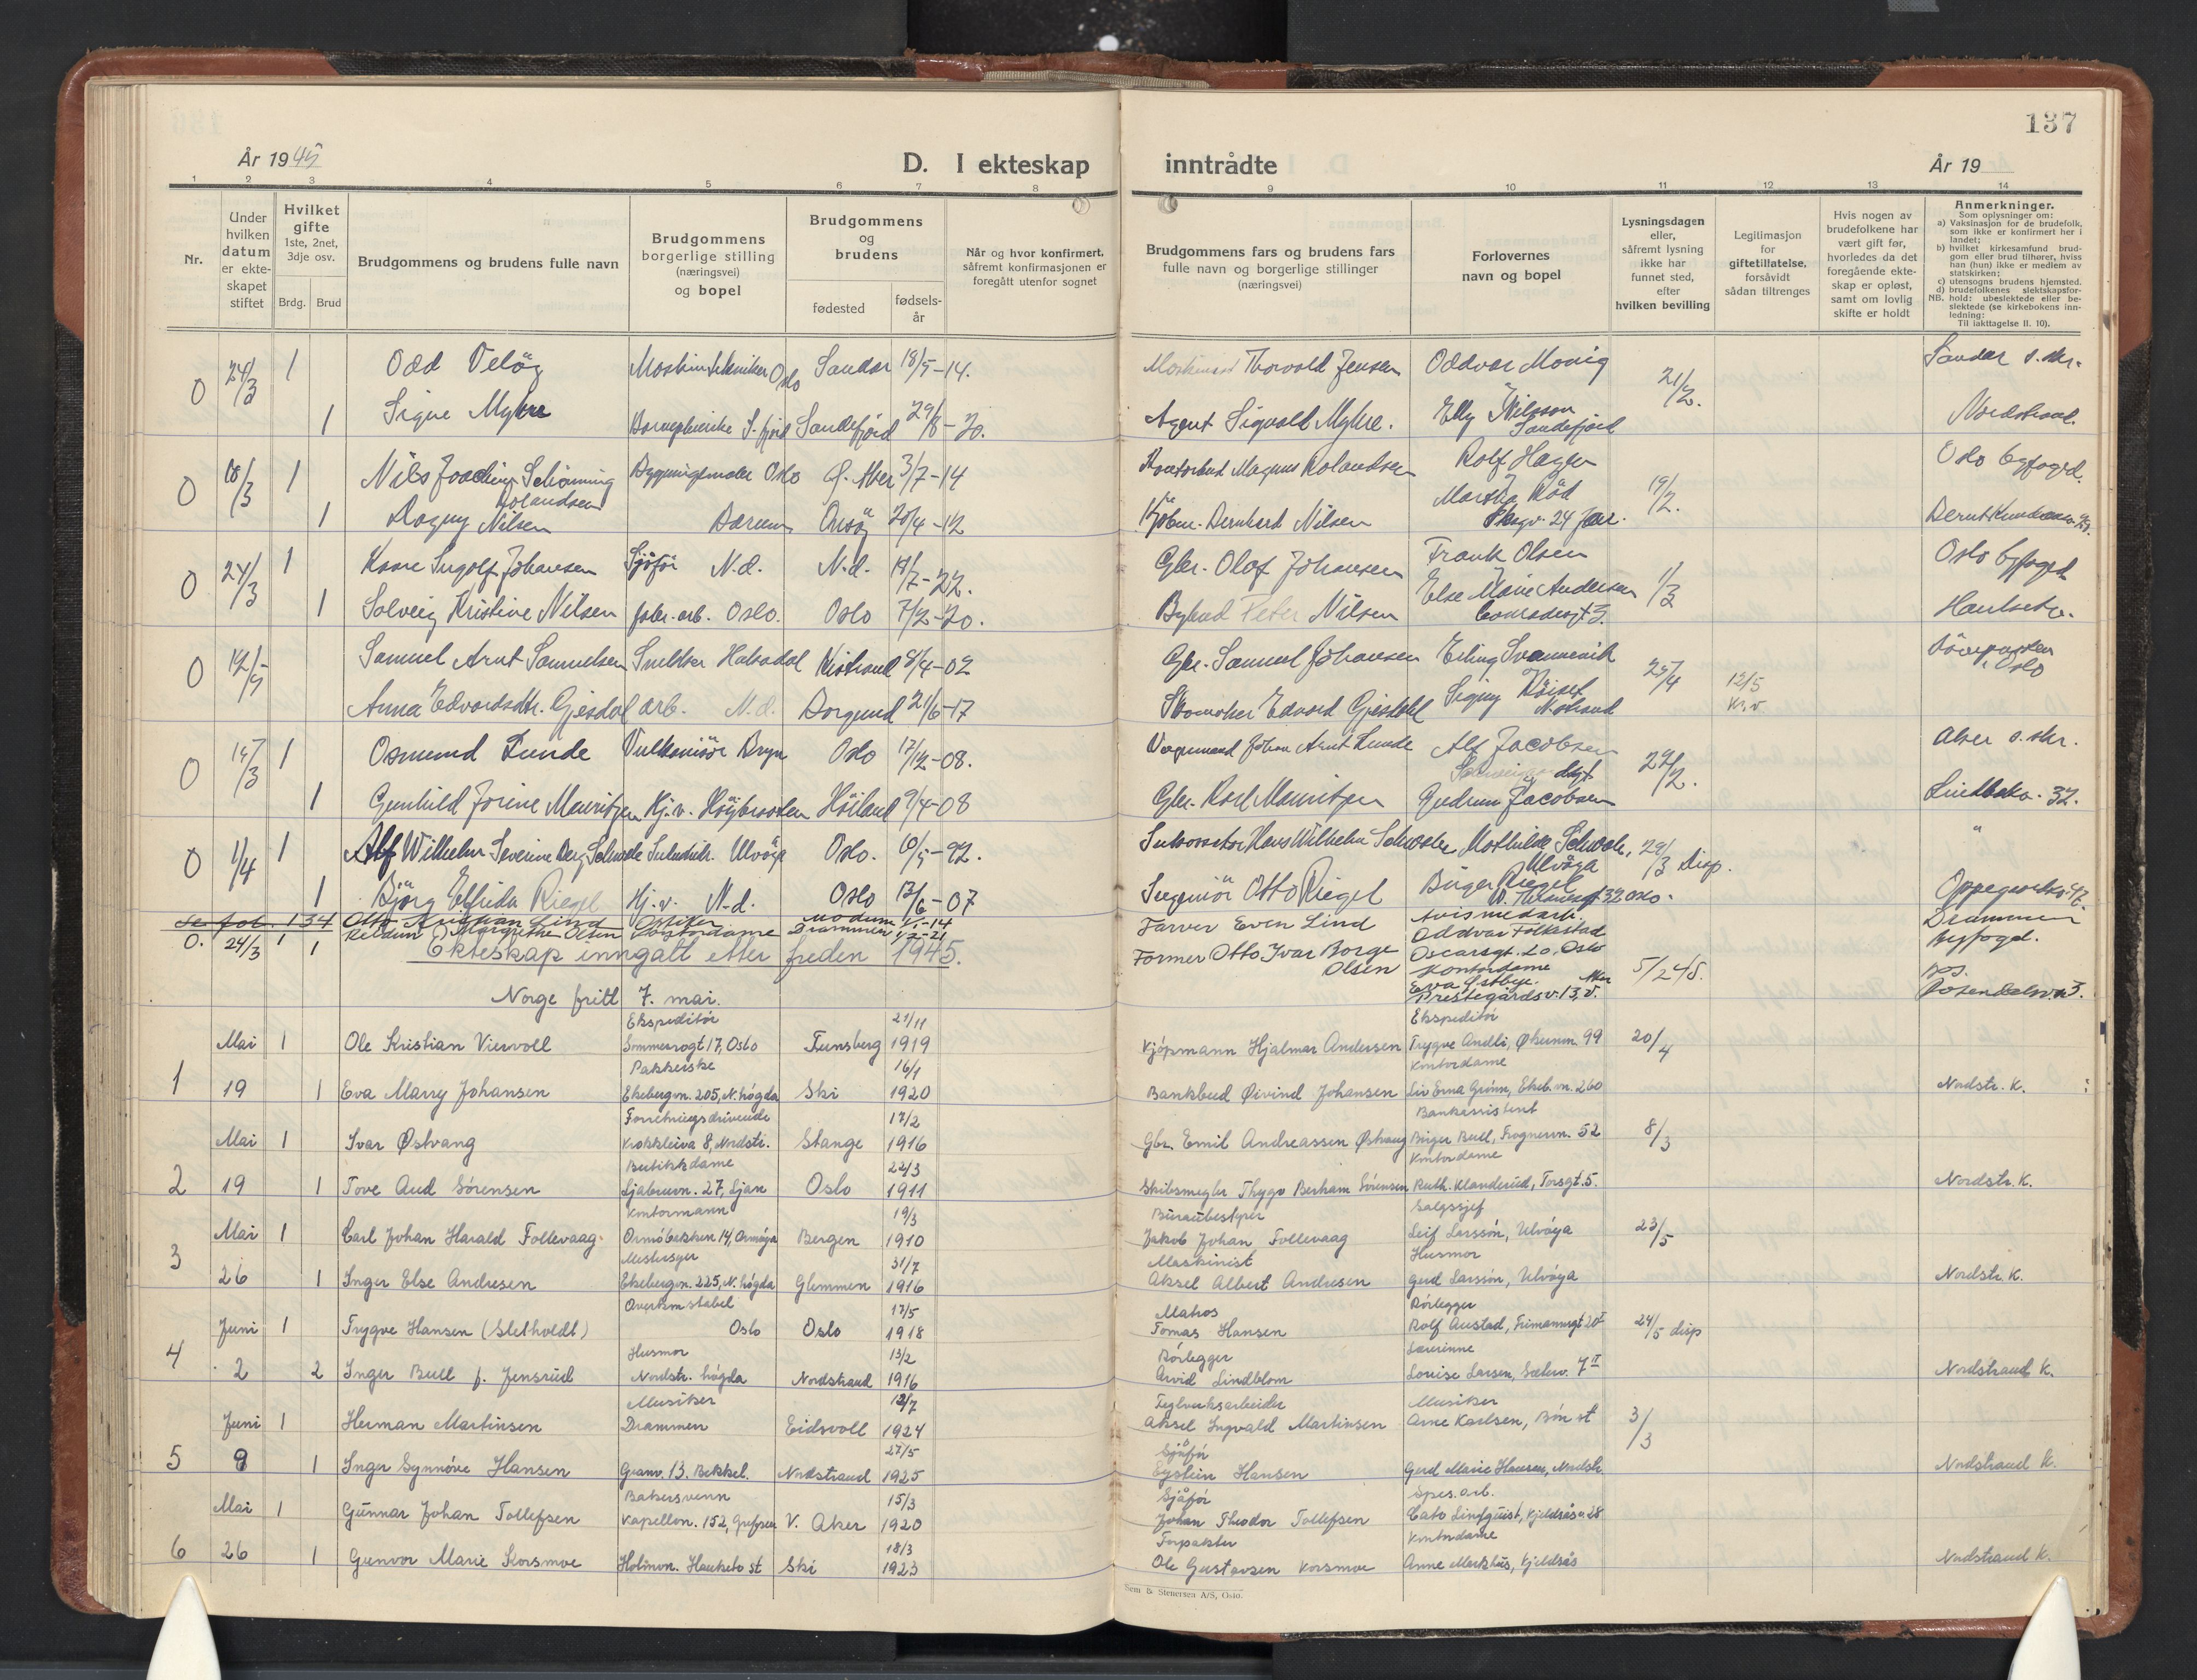 137
År 1945
D. I ekteskap
inntrådte
År 19
1 2 3 4 5 6 7 8 9 10 11 12 13 14
Nr.
Under hvilken datum er ekteskapet stiftet
Hvilket gifte 1ste, 2net, 3dje osv.
Brdg. Brud
Brudgommens og brudens fulle navn
Brudgommens borgerlige stilling (næringsvei) og bopel
Brudgommens og brudens
fødested
fødsels-år
Når og hvor konfirmert, såfremt konfirmasjonen er foregått utenfor sognet
Brudgommens fars og brudens fars fulle navn og borgerlige stillinger (næringsvei)
Forlovernes navn og bopel
Lysningsdagen eller, såfremt lysning ikke har funnet sted, efter hvilken bevilling
Legitimasjon for giftetillatelse, forsåvidt sådan tiltrenges
Hvis nogen av brudefolkene har vært gift før, hvorledes da det foregående ekteskap er opløst, samt om lovlig skifte er holdt
Anmerkninger.
Som oplysninger om:
a) Vaksinasjon for de brudefolk, som ikke er konfirmert her i landet;
b) hvilket kirkesamfund brudgom eller brud tilhører, hviss han (hun) ikke er medlem av statskirken;
c) utensogns brudens hjemsted.
d) brudefolkenes slektskapsforhold: ubeslektede eller beslektede (se kirkebokens innledning:
NB.
Til iakttagelse II. 10).
O 24/3 1 Odd Veløy Oslo Sandar 18/5-14. Thorvald Jensen Oddvar Movig 21/2. Sandar s.skr.
1 Signe Myhre S.fjord Sandefjord 29/8-20. Agent Sigvald Myhre. Elly Nilsson Sandefjord Nordstrand.
O 10/3 1 Nils Schønning Rolandsen Bygningsmaler Oslo Ø. Aker 3/7-14 Magnus Rolandsen Rolf Hagen 19/2. Oslo byfogd.
1 Ragny Nilsen Bærum Onsøy 20/4-12 Kjøbm. Bernhard Nilsen Martha Rød
O 24/3 1 Kaare Ingolf Johansen Sjåfør N.d. N.d. 19/7-22. Gbr. Olaf Johansen Frank Olsen 1/3 Oslo byfogd
1 Solveig Kristine Nilsen fabr.arb. Oslo. Oslo 7/2-20. Bybud Peter Nilsen Else Marie Andersen
O Samuel Arnt Samuelsen Snekker Kistrand 8/4-02 Gbr. Samuel Johansen Erling Svanevik 25/4 Oslo
Anna Edvardsdtr. Gjesdal arb. N.d. Borgund 21/6-17 Skomaker Edvard Gjesdal Signy N.strand 12/5
O 1 Osmund Lunde Bryn Oslo 17/12-08. Johan Arnt Lunde Alf Jacobsen 22/2. Aker s.skr.
1 Gunhild Jorine Mauritzen Hj.v. Høiland 9/4-08 Gbr. Karl Mauritzen Gudrun Jacobsen
O 1/4 1 Alf Wilhelm Severin Berg Schwole Ulvøya Oslo. -92. Hans Wilhelm Mathilde Ulvøya 29/3 Disp. "
1 Bjørg Elfrida Riegel Hj.v. N.d. Oslo 13/6-07 Ingeniør Otto Riegel Birger Riegel Oslo.
se fol. 134 Otto Kristian Lind Modum -14 Farver Even Lind Avismedarb. Oddvar Folkestad Oscarsgt. 20, Oslo Drammen byfogd.
O. 24/3 1 1 Reidun Margrethe Olsen Kontordame Drammen -21 Former Otto Ivar Borge Olsen Kontordame Eva Østbye. Prestegårdsv. 13, V. Aker 5/2 45.
Ekteskap inngått etter freden 1945.
Norge fritt 7. mai.
1 Mai 1 Ole Kristian Viervoll Ekspeditør Sommerrogt 17, Oslo Tunsberg 21/11 1919 Kjøpmann Hjalmar Andersen Ekspeditør Trygve Andli, Økernv. 99 20/4
19 1 Eva Marry Johansen Pakkerske Ekebergv. 205, N.høgda Ski 16/1 1920 Bankbud Øivind Johansen Kontordame Liv Erna Grønn, Ekeb.vn. 260 Nordstr. K.
2 Mai 1 Ivar Østvang Forretningsdrivende Krokkleiva 8, Nordstr. Stange 17/2 1916 Gbr. Emil Andreassen Østvang Bankassistent Birger Bull, Frognervn. 52 8/3
19 1 Tove Aud Sörensen Butikkdame Ljabruvn. 27, Ljan Oslo 22/3 1911 Skibsmegler Thygo Berham Sörensen Kontordame Ruth Klanderud, Torsgt. 5. Nordstr. K.
3 Mai 1 Carl Johan Harald Follevaag Kontormann Ormöbakken 14, Ormöya Bergen 19/3 1910 Büraubestyrer Jakob Johan Follevaag Salgssjef Leif Larssön, Ulvöya 23/5
26 1 Inger Else Andresen Ekebergvn. 225, N.høgda Glemmen 31/7 1916 Maskinist Aksel Albert Andresen Husmor Gerd Larssön, Ulvöya Nordstr. K.
4 Juni 1 Trygve Hansen (Sletholdt) Overkonstabel Oslo Oslo 17/5 1918 Matros Tomas Hansen Rörlegger Rolf Austad, Frimannsgt 20 I 24/5 disp
2 2 Inger Bull f. Jensrud Husmor Nordstr. høgda Nordstrand 13/2 1916 Rörlegger Arvid Lindblom Lærerinne Louise Larsen, Sæterv. 7 II Nordstrand K.
5 Juni 1 Herman Martinsen Musiker Drammen Eidsvoll 12/7 1924 Teglverksarbeider Aksel Ingvald Martinsen Musiker Arne Karlsen, Bön st 3/3
9 1 Inger Synnöve Hansen Granv. 13. Bekkel. Nordstrand 27/5 1925 Sjåför Eystein Hansen Gerd Marie Hansen, Nordstr. Nordstrand K.
6 Mai 1 Gunnar Johan Tollefsen Bakersvenn Kapellvn. 152, Grefsen V. Aker 15/3 1920 Sjåför Johan Theodor Tollefsen Spes.arb. Cato Linfquist, Kjeldsåsv. 28
26 1 Gunvor Marie Korsmoe Holmvn. Hauketo st Ski 18/3 1923 Forpakter Ole Gustavsen Korsmoe Kontordame Anne Markhus, Kjeldsås Nordstrand K.
Sem & Stenersen A/S, Oslo.